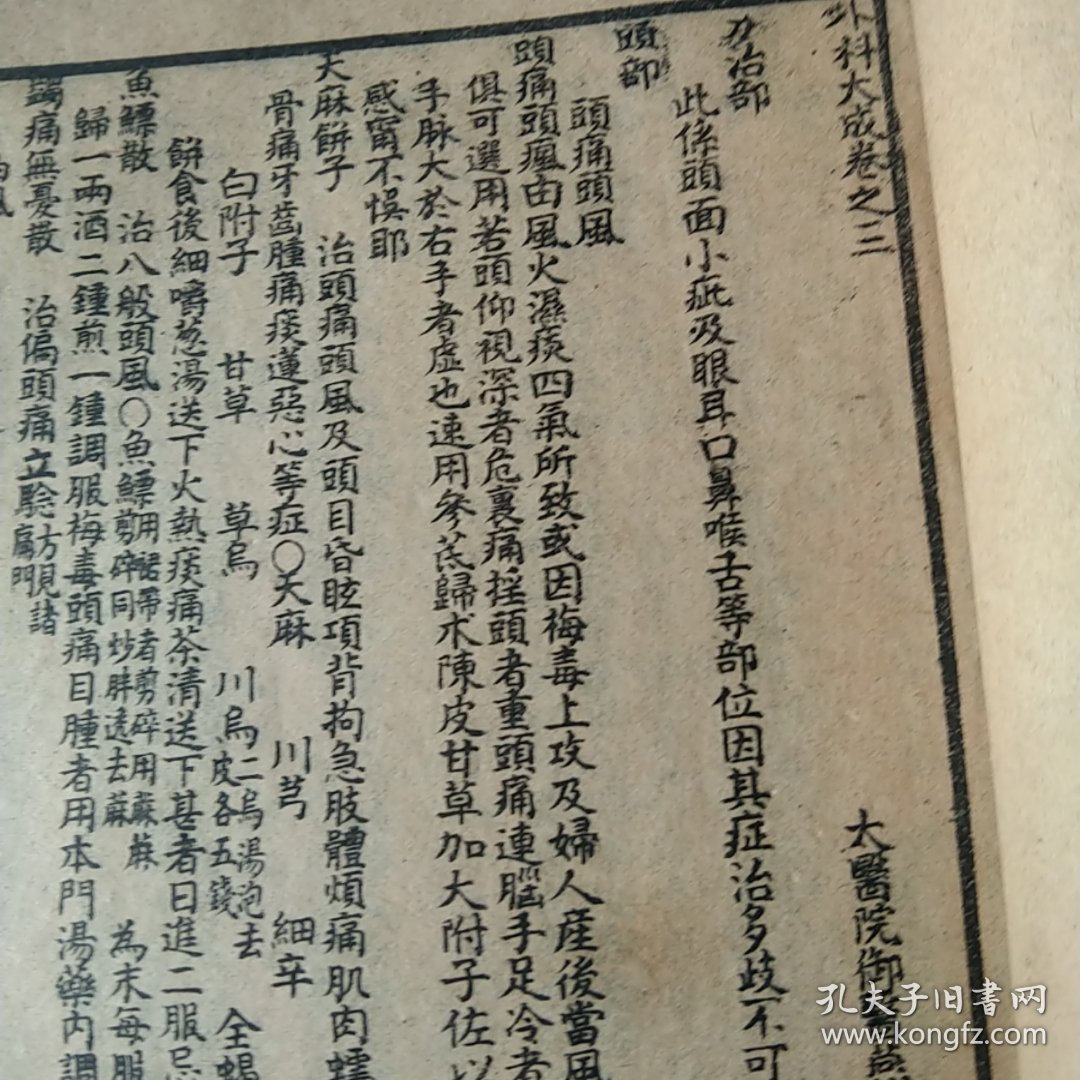 外科大成卷之三
太醫院御
分治部
此係頭面小疵及眼耳口鼻喉舌等部位因其症治多歧不可
頭部
頭痛頭風
頭痛頭瘋由風火濕痰四氣所致或因梅毒上攻及婦人產後當風
俱可選用若頭仰視深者危裏痛搖頭者重頭痛連腦手足冷者
手脉大於右手者虛也速用參茋歸朮陳皮甘草加大附子佐以
感甯不悞耶
天麻餅子 治頭痛頭風及頭目昏眩項背拘急肢體煩痛肌肉蠕
骨痛牙齒腫痛痰蓮惡心等症○天麻 川芎 細辛
白附子 甘草 草烏 川烏二烏湯泡去皮各五錢 全蝎
餅食後細嚼葱湯送下火熱痰痛茶清送下甚者日進二服忌
魚鰾散 治八般頭風○魚鰾剪碎用裙帶者剪碎用蘇蘇同炒胖透去蘇 為末每服
歸一兩酒二鍾煎一鍾調服梅毒頭痛目腫者用本門湯藥內調
蠲痛無憂散 治偏頭痛立騐方見諸扁門
孔夫子旧书网
www.kongfz.com